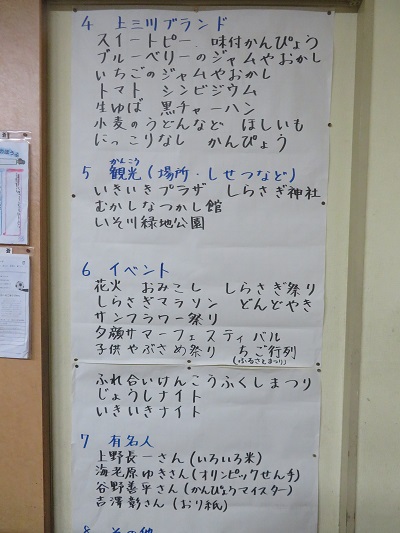 4 上三川ブランド
スイートピー 味付かんぴょう
ブルーベリーのジャムやおかし
いちごのジャムやおかし
トマト シンビジウム
生ゆば 黒チャーハン
小麦のうどんなど ほしいも
にっこりなし かんぴょう
かんこう
5 観光(場所・しせつなど)
いきいきプラザ しらさぎ神社
むかしなつかし館
いそ川緑地公園
6 イベント
花火 おみこし しらさぎ祭り
しらさぎマラソン どんどやき
サンフラワー祭り
夕顔サマーフェスティバル
子供やぶさめ祭り ちご行列
(ふるさとまつり)
ふれ合いけんこうふくしまつり
じょうしナイト
いきいきナイト
7 有名人
上野長一さん(いろいろ米)
海老原ゆきさん(オリンピックせん手)
谷野善平さん(かんぴょうマイスター)
吉澤彰さん(おり紙)
8 その他